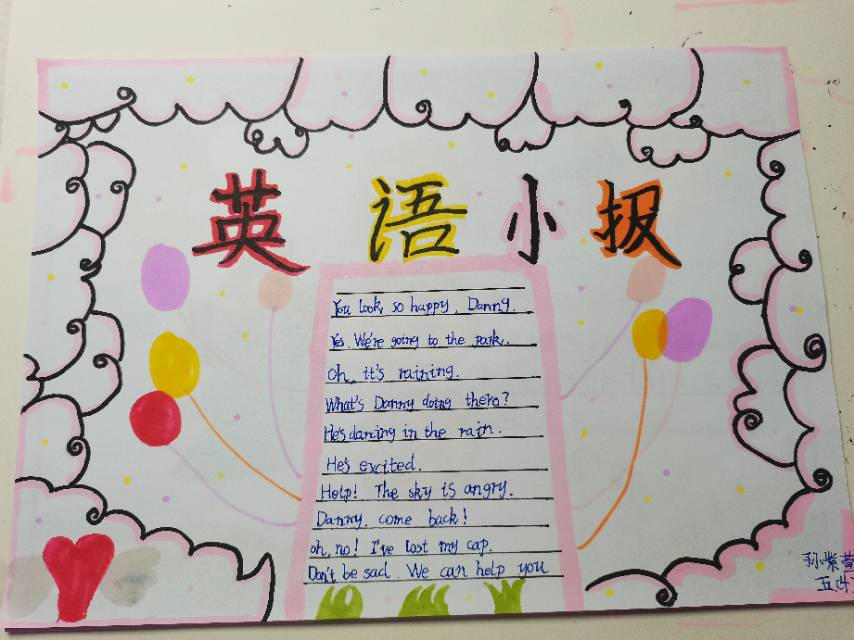 英语小报
You look so happy, Danny.
Yes. We're going to the park.
Oh, it's raining.
What's Danny doing there?
He's dancing in the rain.
He's excited.
Help! The sky is angry.
Danny, come back!
oh, no! I've lost my cap.
Don't be sad. We can help you
孙紫
五